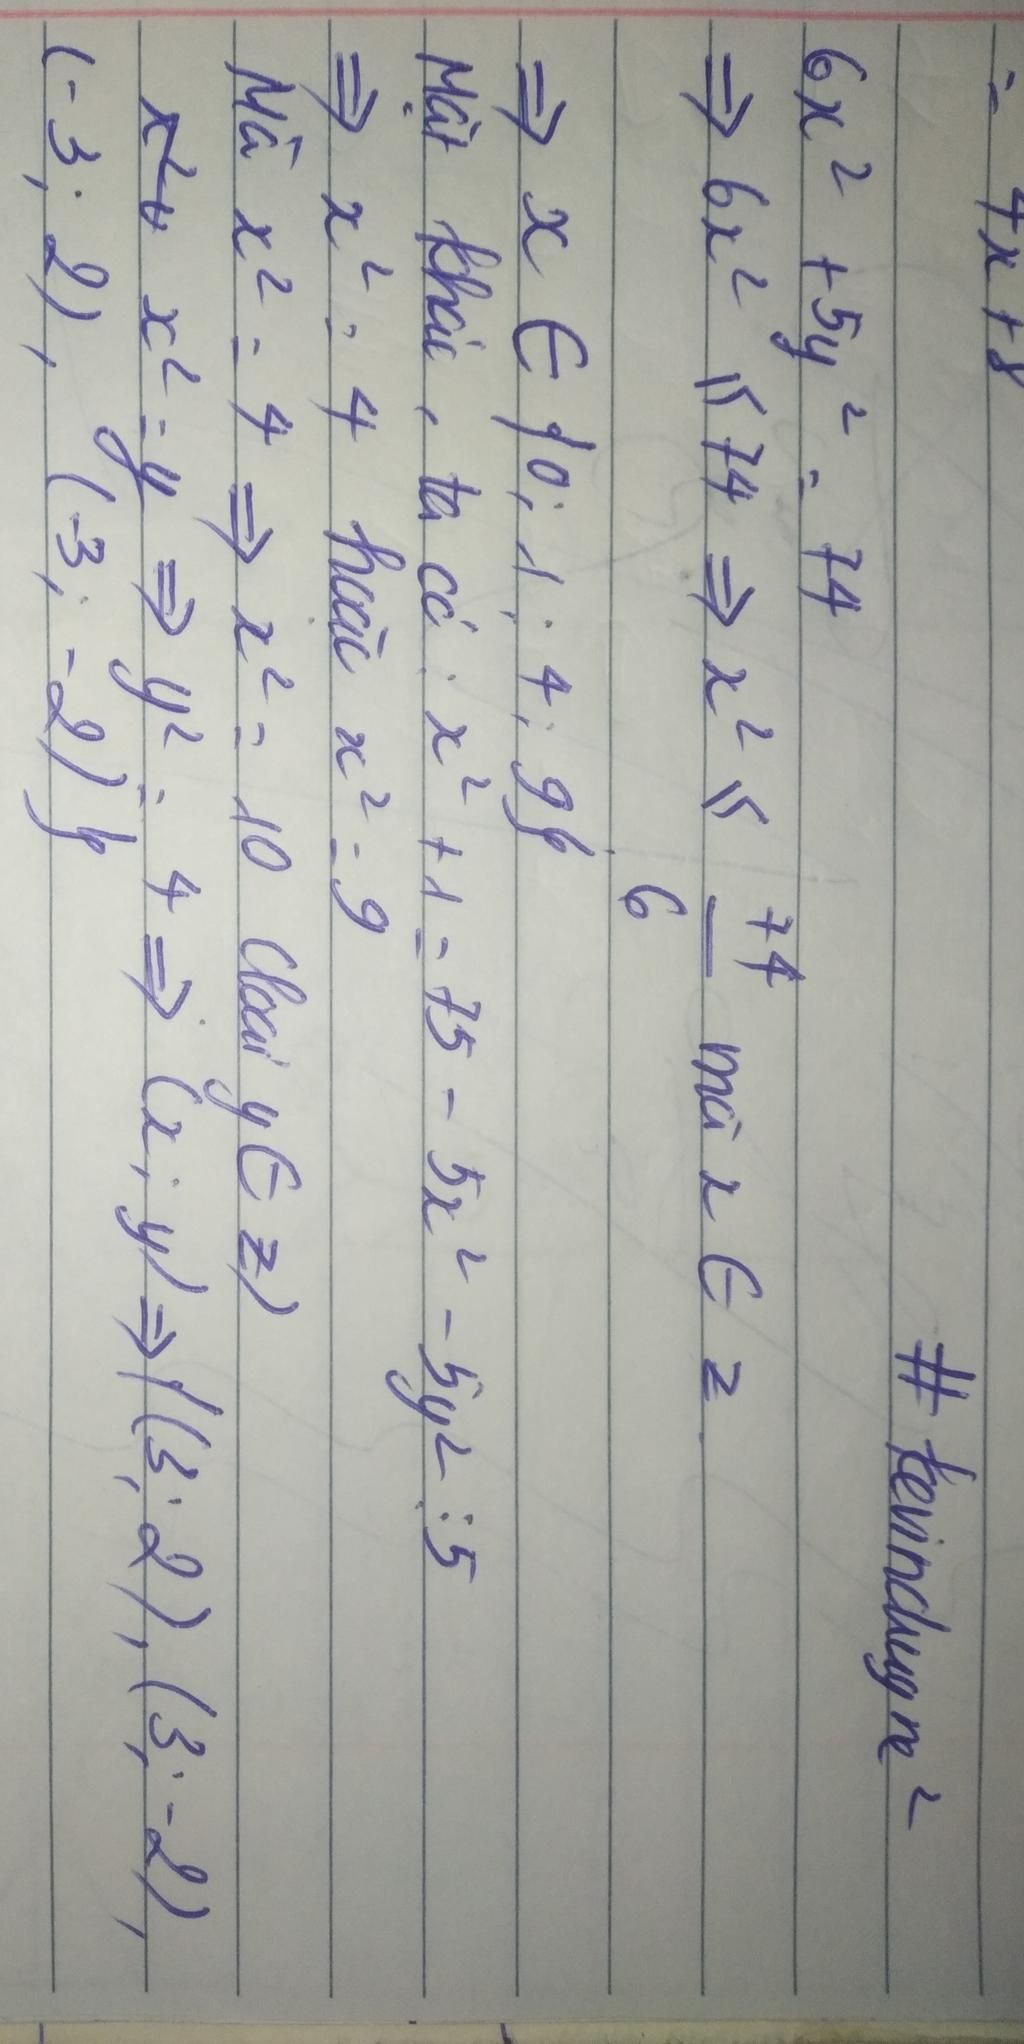 = 4x + 8
# kevinduyne²
6x² + 5y² = 74
⇒ 6x² ≤ 74 ⇒ x² ≤ 74/6 mà x ∈ z
⇒ x ∈ {0; 1; 4; 9}
Mặt khác, ta có: x² + 1 = 75 - 5x² - 5y² ⋮ 5
⇒ x² = 4 hoặc x² = 9
Mà x² = 4 ⇒ x² = 10 (loại y ∈ z)
x² = y ⇒ y² = 4 ⇒ (x; y) ⇒ {(3; 2), (3; -2),
(-3; 2), (-3; -2)}